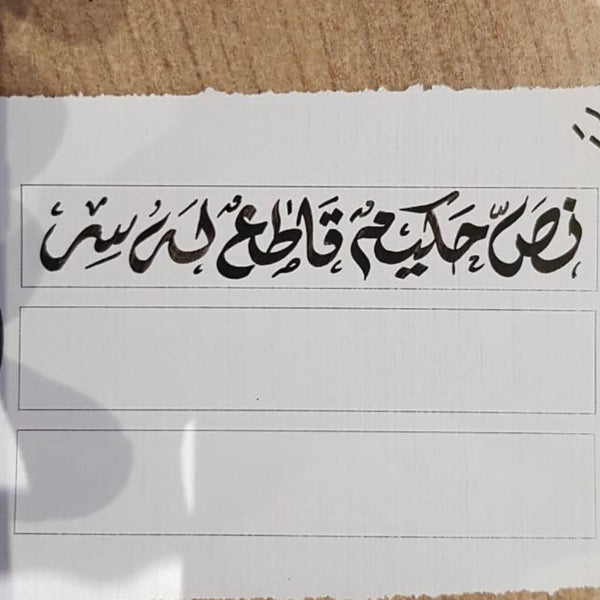 نصٌّ حَكيمٌ قَاطِعٌ لَهُ سِر